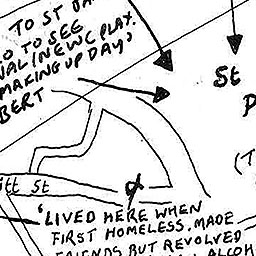 TO ST
O TO SEE
NAL (NEWC PLAY.
MAKING UP DAY)
BERT
St
P
(T
itt St
'LIVED HERE WHEN
FIRST HOMELESS. MADE
FRIENDS BUT REVOLVED
ALCOH